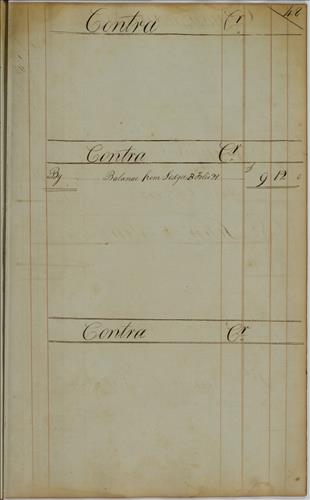 46
Contra Cr.
Contra Cr.
By Balance from Ledger B Folio £ 9 12
Contra Cr.